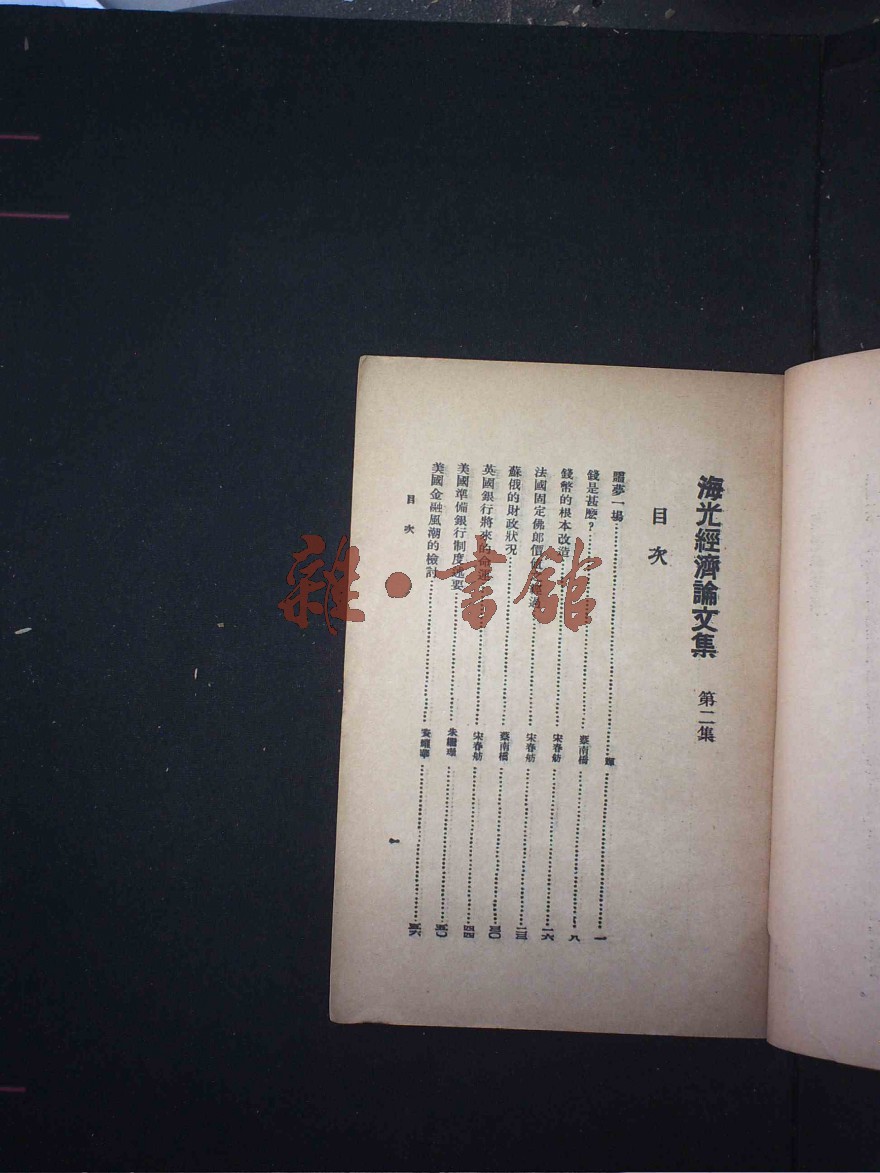 海光經濟論文集 第二集
目次
夢一場……輝……一
錢是甚麽?……蔡南橋……八
錢幣的根本改造……宋春舫……一六
法國固定佛郎價值……宋春舫……二三
蘇俄的財政狀况……蔡南橋……三〇
英國銀行將來的命運……宋春舫……四四
美國準備銀行制度述要……朱……五〇
美國金融風潮的檢討……五六
目次
一
雜·書館